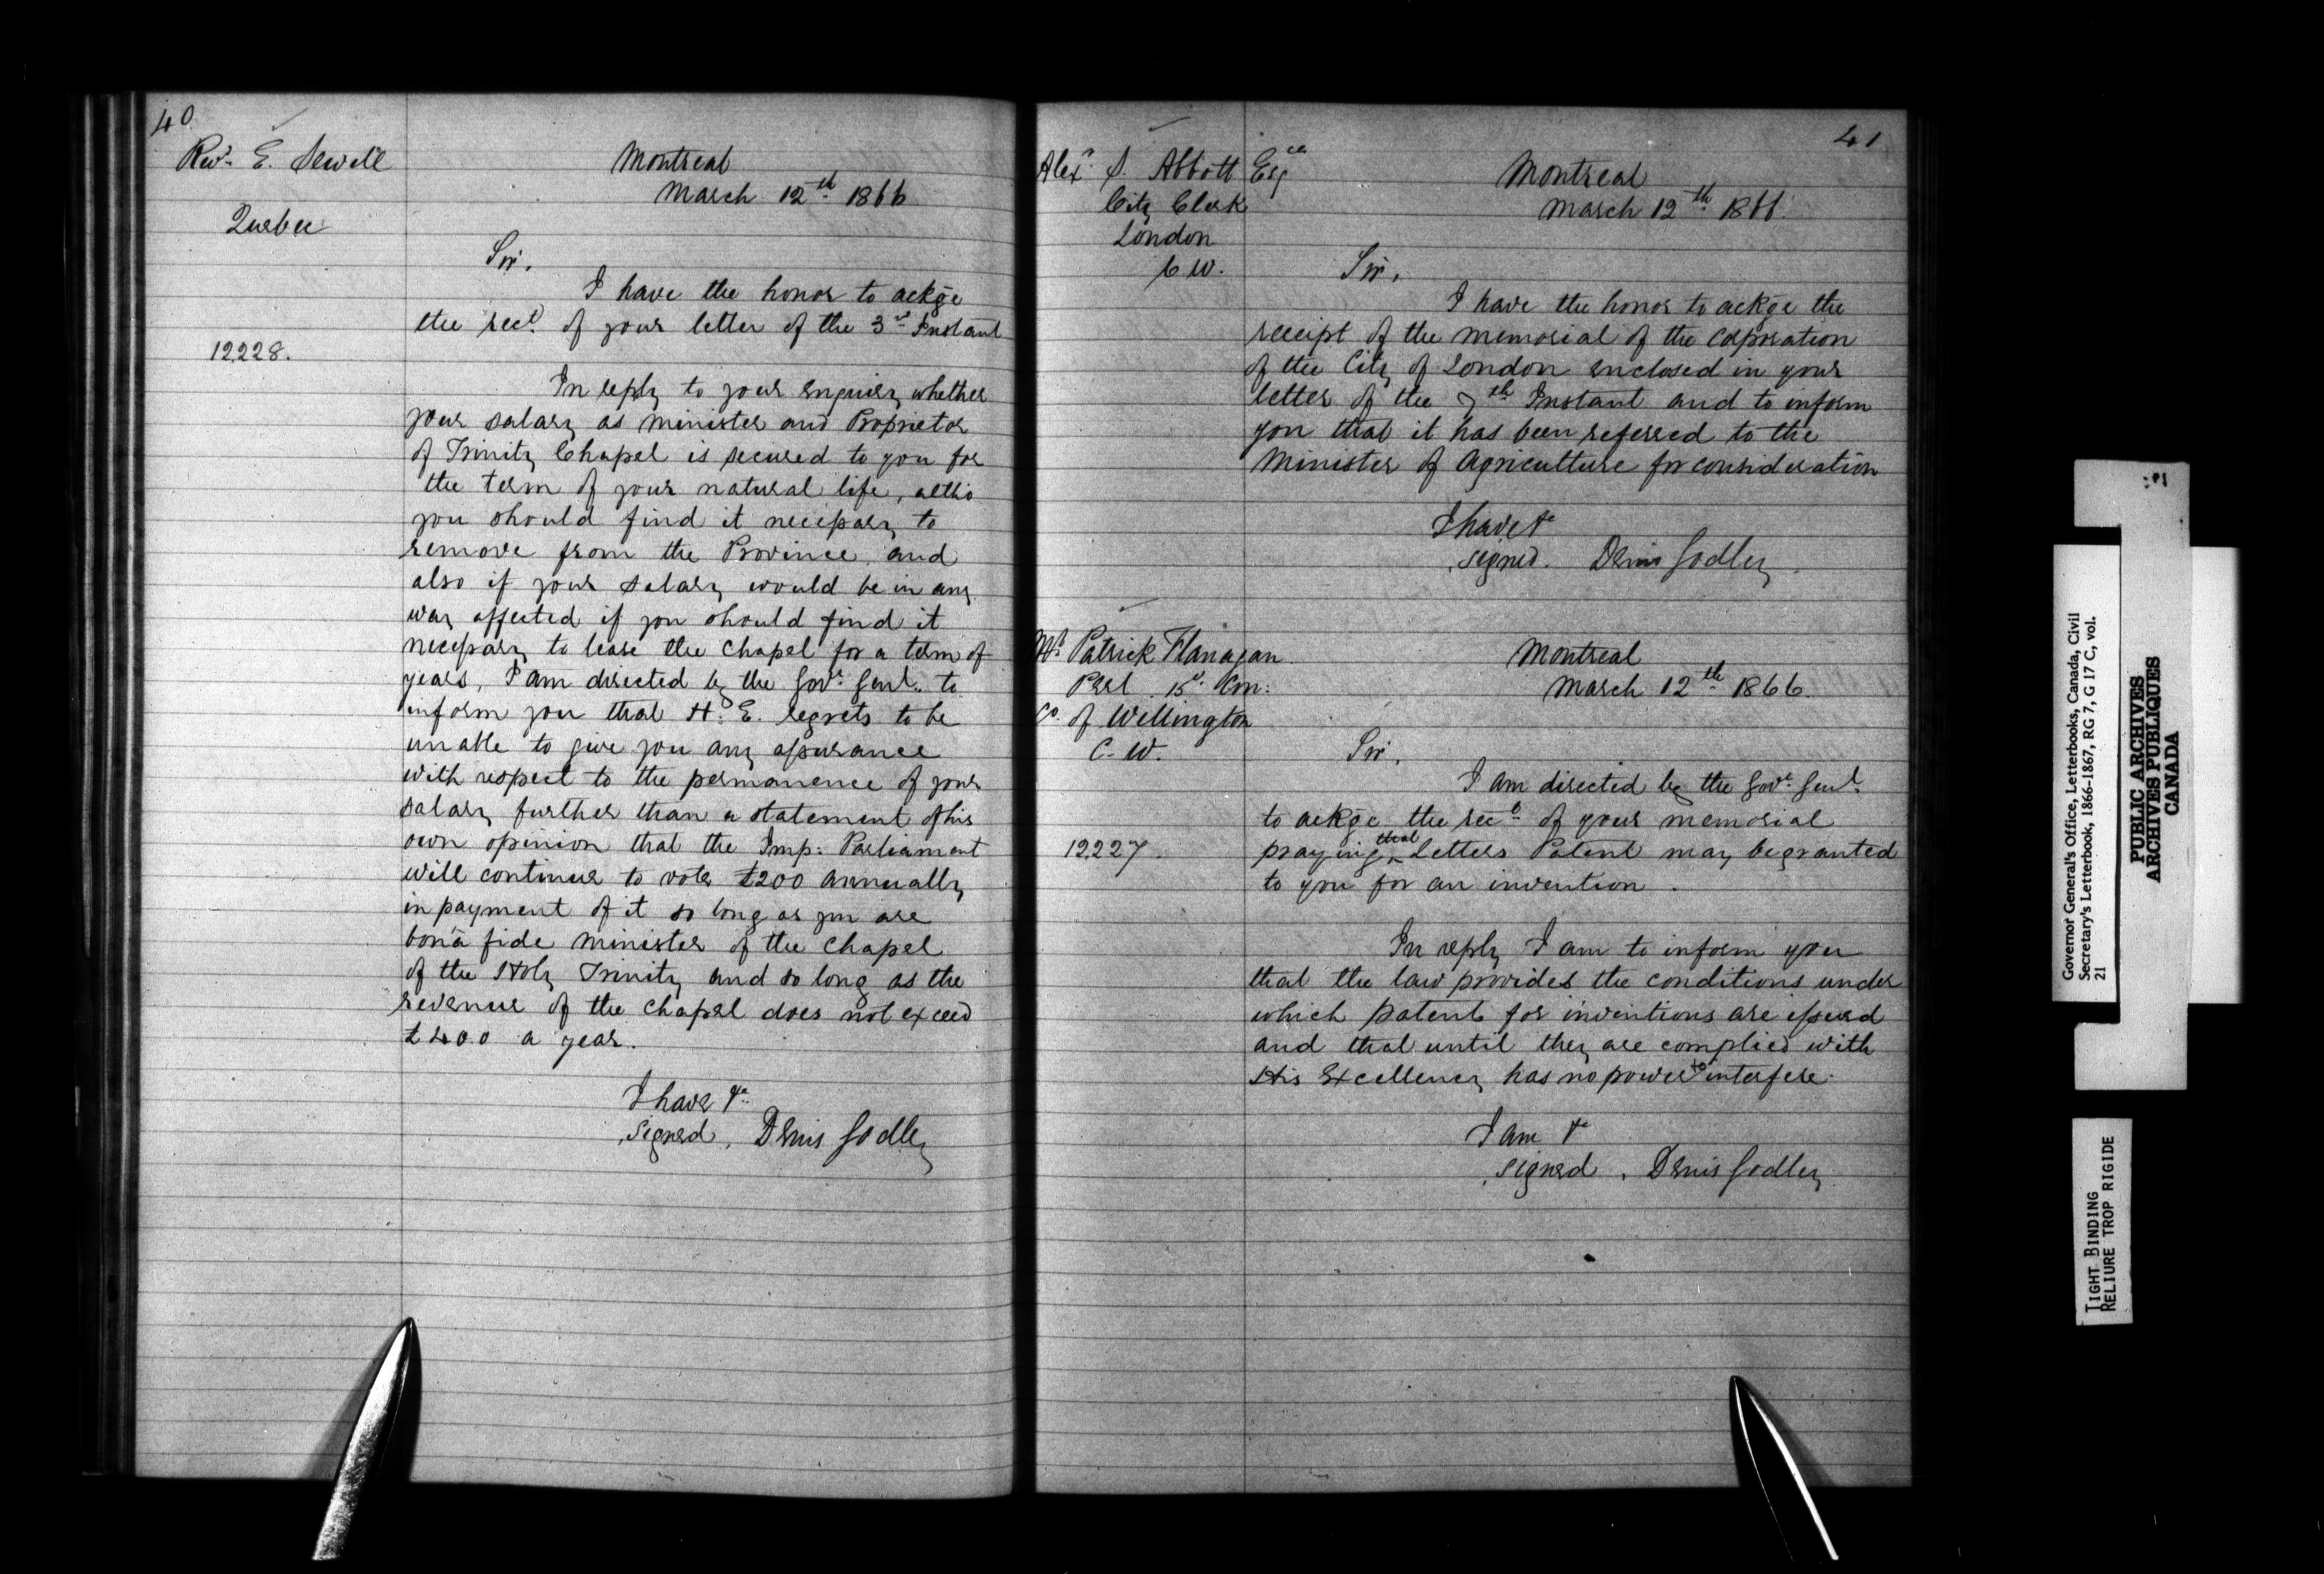 40
Revd. E. Sewell
Quebec
12,228.
Montreal
March 12th 1866
Sir,
I have the honor to ackge
the rect. of your letter of the 3rd Instant
In reply to your enquiry whether
your salary as minister and Proprietor
of Trinity Chapel is secured to you for
the term of your natural life, altho
you should find it necessary to
remove from the Province, and
also if your salary would be in any
way affected if you should find it
necessary to lease the Chapel for a term of
years, I am directed by the Govr. Genl. to
inform you that H. E. regrets to be
unable to give you any assurance
with respect to the permanence of your
salary further than a statement of his
own opinion that the Imp: Parliament
will continue to vote £200 annually
in payment of it so long as you are
bonâ fide minister of the Chapel
of the Holy Trinity and so long as the
revenue of the Chapel does not exceed
£400 a year.
I have &c.
signed, Denis Godley
41
Alexr. S. Abbott Esqre
City Clerk
London
C W.
Montreal
March 12th 1866.
Sir,
I have the honor to ackge the
receipt of the memorial of the Corporation
of the City of London enclosed in your
letter of the 7th Instant and to inform
you that it has been referred to the
Minister of Agriculture for consideration
I have &c
signed. Denis Godley
Mr. Patrick Flanagan
Peel
Co. of Wellington
C. W.
12,227.
Montreal
March 12th 1866.
Sir,
I am directed by the Govr. Genl.
to ackge the rect. of your memorial
praying that Letters Patent may be granted
to you for an invention.
In reply I am to inform you
that the law provides the conditions under
which patents for inventions are issued
and that until they are complied with
His Excellency has no power to interfere.
I am &c
signed, Denis Godley
Governor General's Office, Letterbooks, Canada, Civil
Secretary's Letterbook, 1866-1867, RG 7, G 17 C, vol.
21
PUBLIC ARCHIVES
ARCHIVES PUBLIQUES
CANADA
TIGHT BINDING
RELIURE TROP RIGIDE